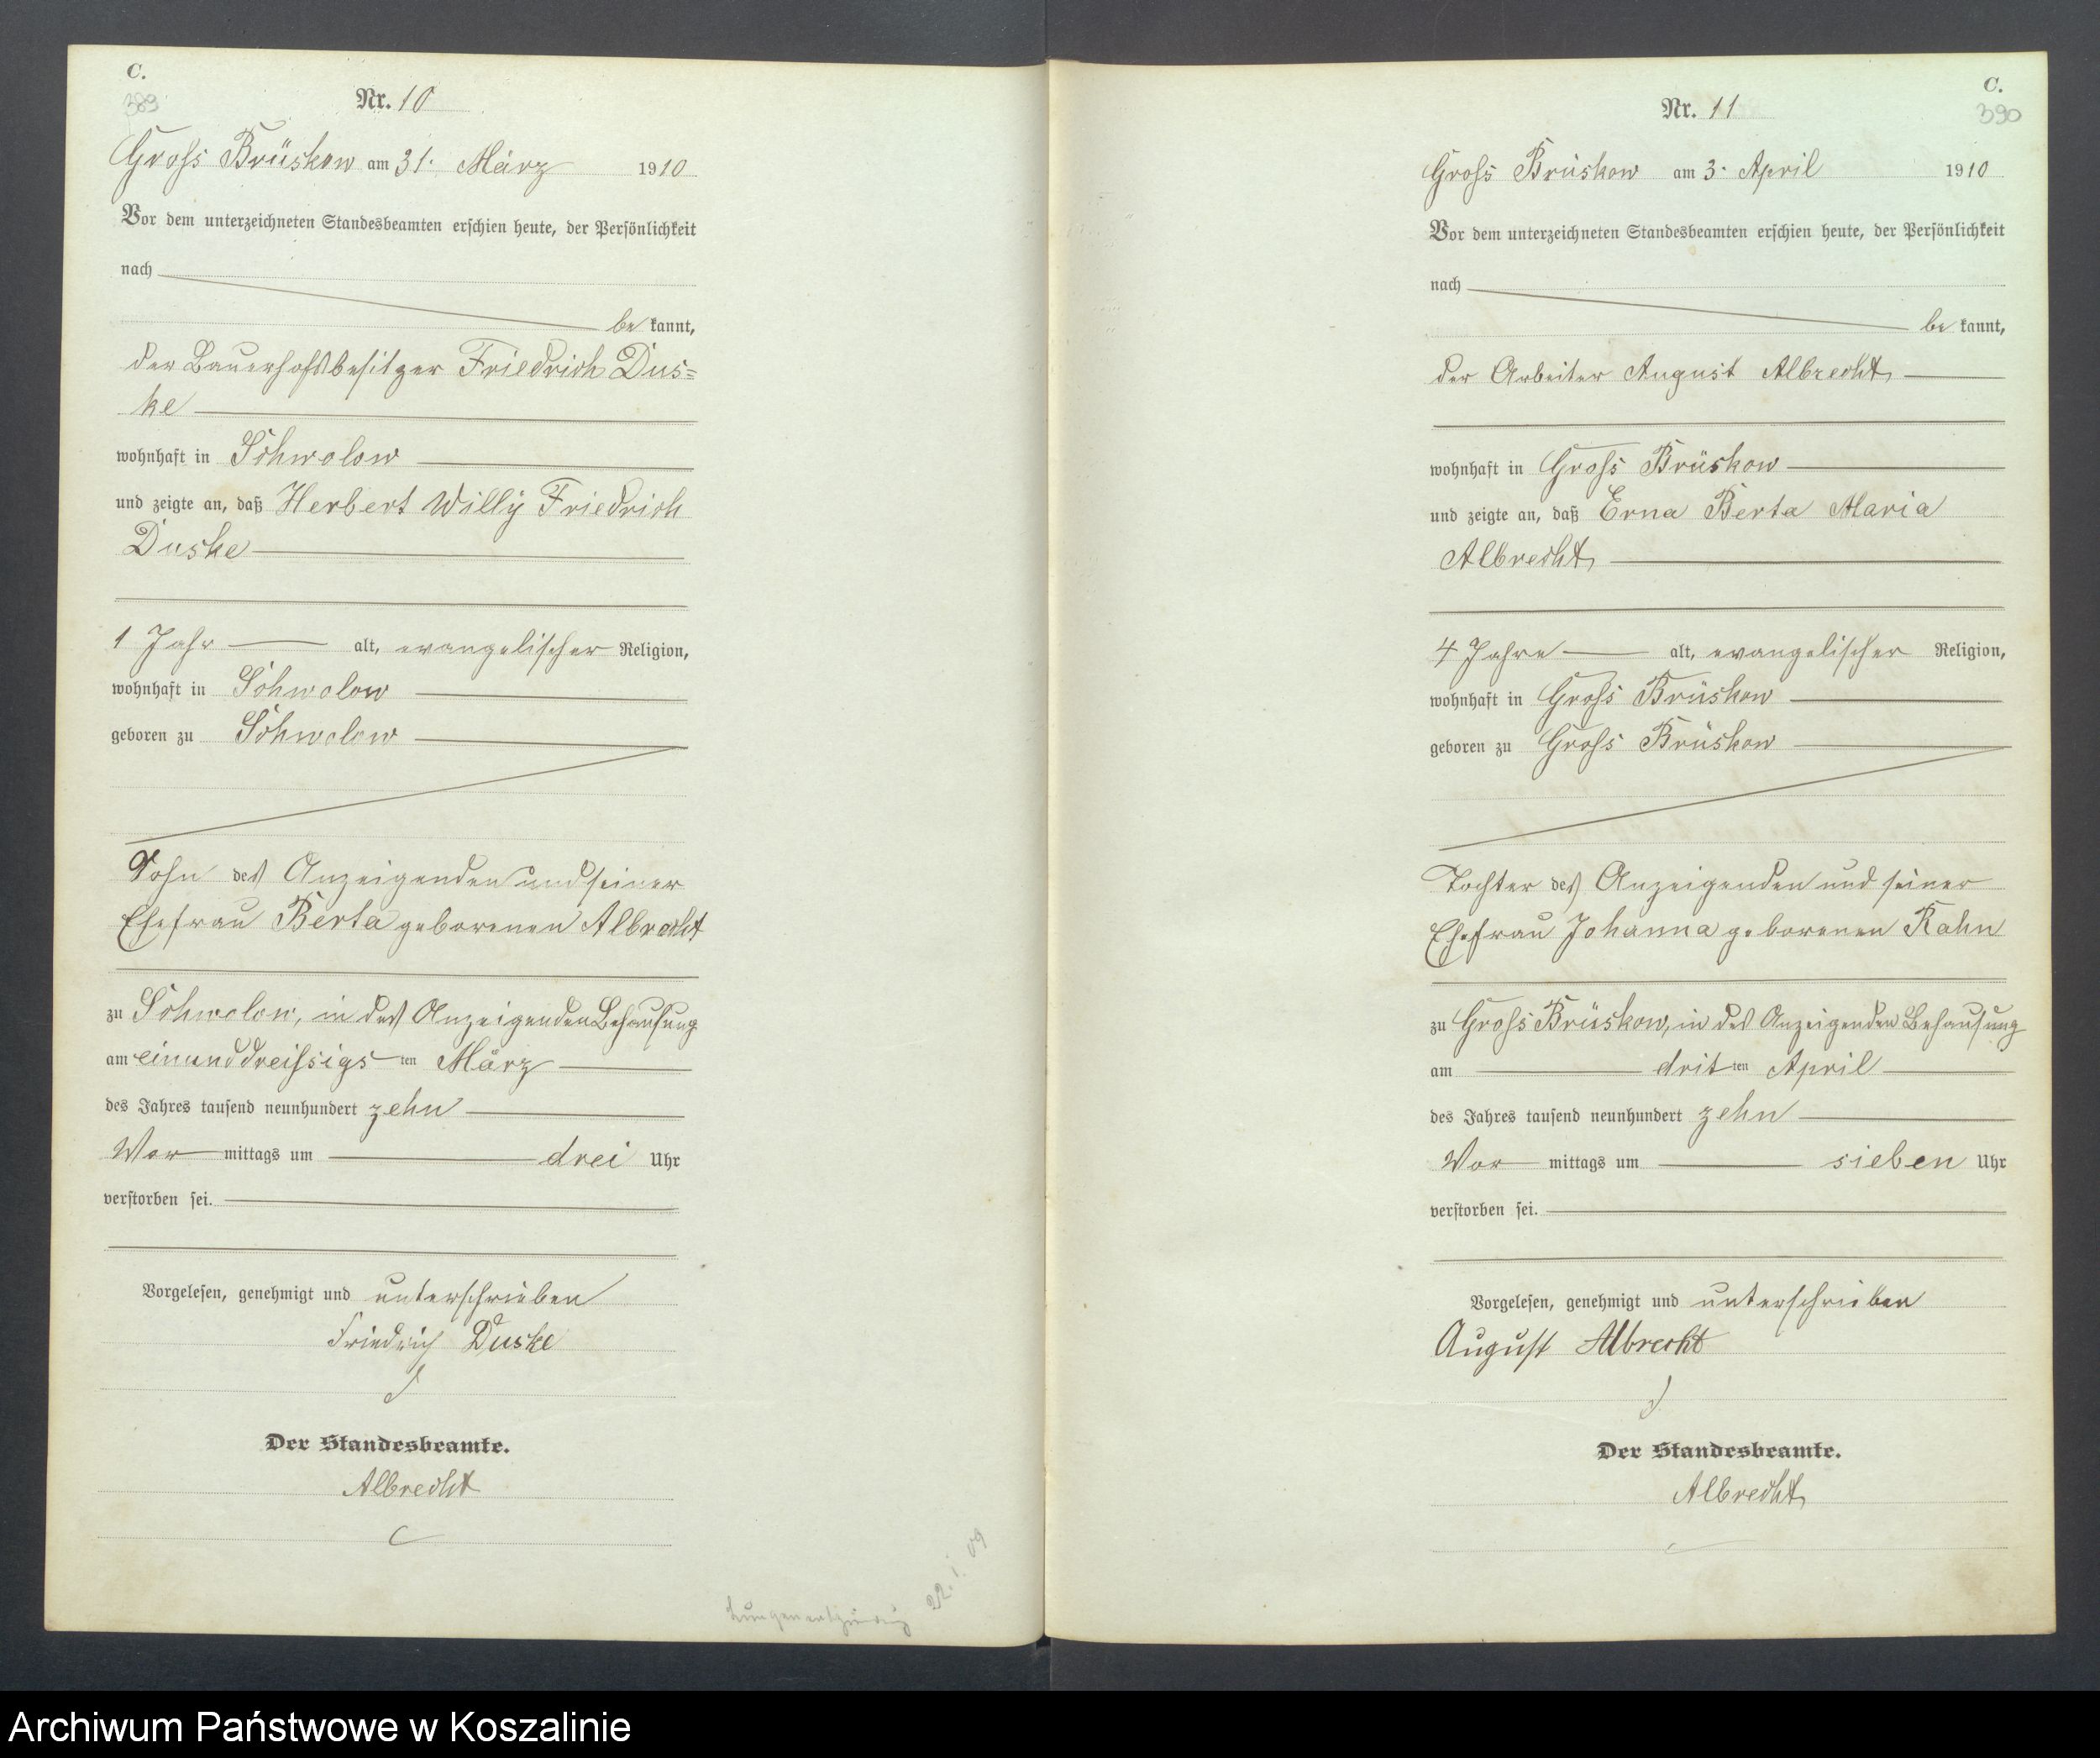 C.
389
Nr. 10
Gross Brüskow am 31. März 1910
Vor dem unterzeichneten Standesbeamten erschien heute, der Persönlichkeit
nach
be kannt,
der Bauerhofsbesitzer Friedrich Dus=
ke
wohnhaft in Schwolow
und zeigte an, daß Herbert Willy Friedrich
Duske
1 Jahr alt, evangelischer Religion,
wohnhaft in Schwolow
geboren zu Schwolow
Sohn des Anzeigenden und seiner
Ehefrau Berta geborenen Albrecht
zu Schwolow, in des Anzeigenden Behausung
am einunddreissigs ten März
des Jahres tausend neunhundert zehn
Vor mittags um drei Uhr
verstorben sei.
Vorgelesen, genehmigt und unterschrieben
Friedrich Duske
Der Standesbeamte.
Albrecht
Lungenentzündung 22. 1. 09
C.
390
Nr. 11
Gross Brüskow am 3. April 1910
Vor dem unterzeichneten Standesbeamten erschien heute, der Persönlichkeit
nach
be kannt,
der Arbeiter August Albrecht
wohnhaft in Gross Brüskow
und zeigte an, daß Erna Berta Maria
Albrecht
4 Jahre alt, evangelischer Religion,
wohnhaft in Gross Brüskow
geboren zu Gross Brüskow
Tochter des Anzeigenden und seiner
Ehefrau Johanna geborenen Rahn
zu Gross Brüskow, in des Anzeigenden Behausung
am drit ten April
des Jahres tausend neunhundert zehn
Vor mittags um sieben Uhr
verstorben sei.
Vorgelesen, genehmigt und unterschrieben
August Albrecht
Der Standesbeamte.
Albrecht
Archiwum Państwowe w Koszalinie